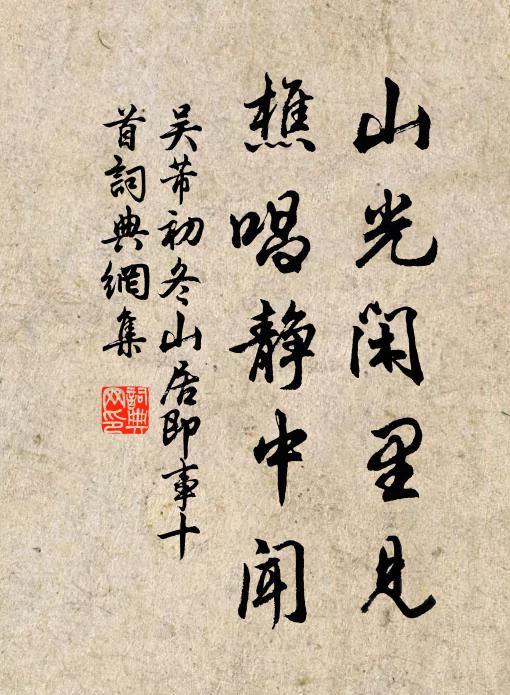 山光闲里見
樵唱静中闻
吴芾初冬山居即事十
首詞典網集
詞典网印